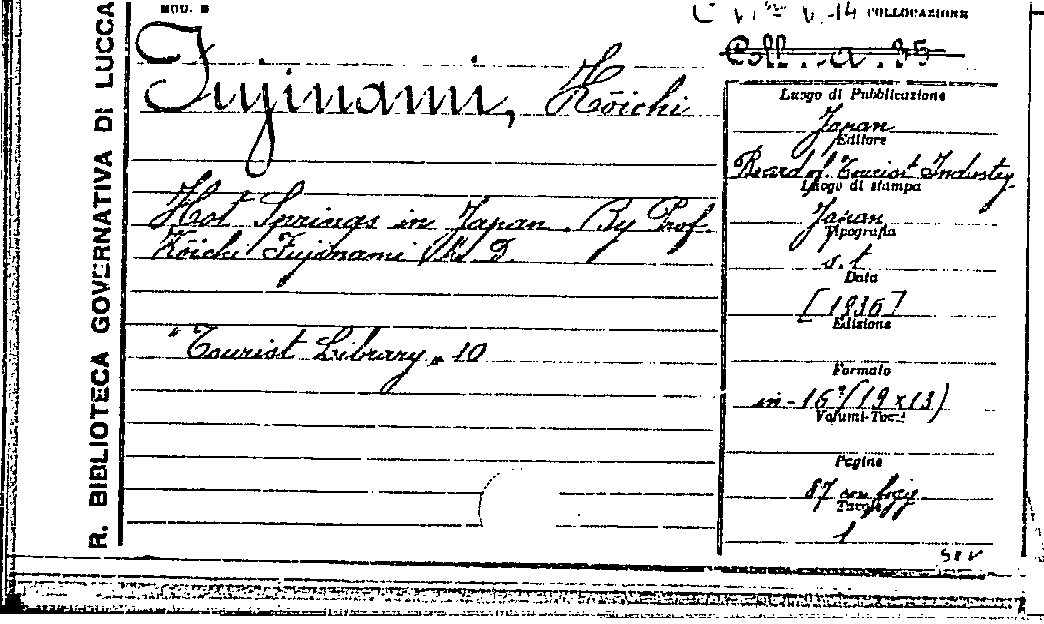 R. BIBLIOTECA GOVERNATIVA DI LUCCA
MOD. B
COLLOCAZIONE
Coll. a. 35
Fujinami, Kōichi
Hot Springs in Japan. By Prof.
Kōichi Fujinami M. D.
"Tourist Library" 10
Luogo di Pubblicazione
Japan
Editore
Board of Tourist Industry
Luogo di stampa
Japan
Tipografia
s. t.
Data
[1936]
Edizione
Formato
in-16º (19x13)
Volumi-Tomi
Pagine
87 con figg.
Tavole
1